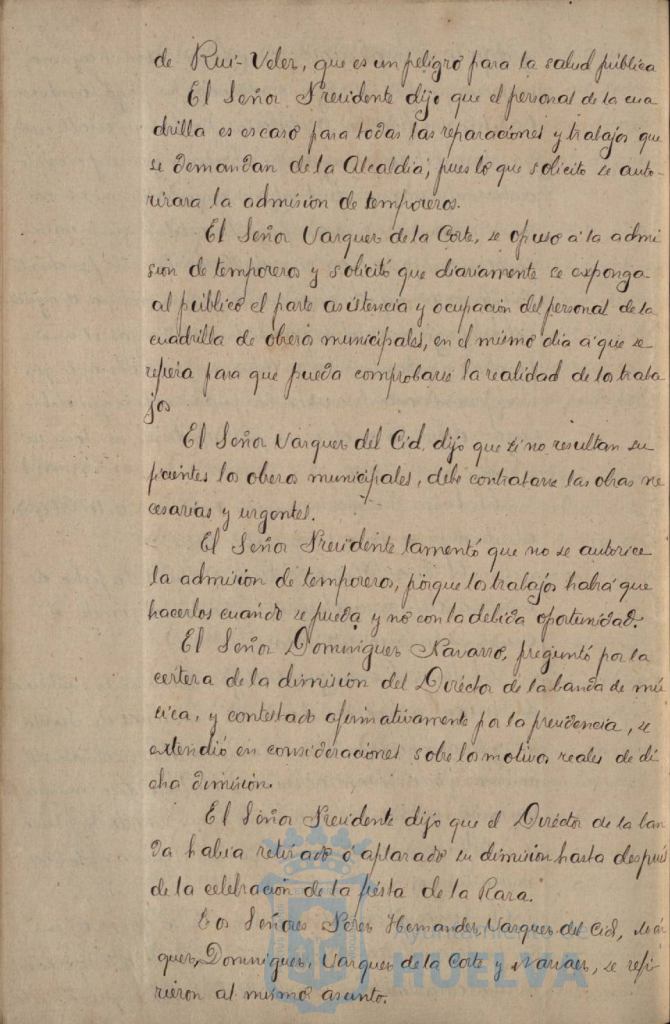 de Rui-Velez, que es un peligro para la salud pública
El Señor Presidente dijo que el personal de la cua
drilla es escaso para todas las reparaciones y trabajos que
se demandan de la Alcaldía, pues lo que solicito se auto-
rizara la admision de temporeros.
El Señor Vazquez de la Corte, se opuso á la admi
sión de temporeros y solicitó que diariamente se exponga
al público el parte asistencia y ocupación del personal de la
cuadrilla de obreros municipales, en el mismo dia á que se
refiera para que pueda comprobarse la realidad de los traba
jos
El Señor Vazquez del Cid, dijo que si no resultan su
ficientes los obreros municipales, debe contratarse las obras ne
cesarias y urgentes.
El Señor Presidente lamentó que no se autorice
la admisión de temporeros, porque los trabajos habrá que
hacerlos cuando se pueda y no con la debida oportunidad.
El Señor Dominguez Navarro, preguntó por la
certeza de la dimisión del Diréctor de la banda de mú
sica, y contestado afirmativamente por la presidencia, se
extendió en consideraciones sobre los motivos reales de di
cha dimisión.
El Señor Presidente dijo que el Diréctor de la ban
da habia retirado ó aplazado su dimisión hasta después
de la celebración de la fiesta de la Raza.
Los Señores Pérez Hernandez, Vazquez del Cid, Már
quez, Dominguez, Vazquez de la Corte y Narvaez, se refi
rieron al mismo asunto.
Ayuntamiento de
HUELVA